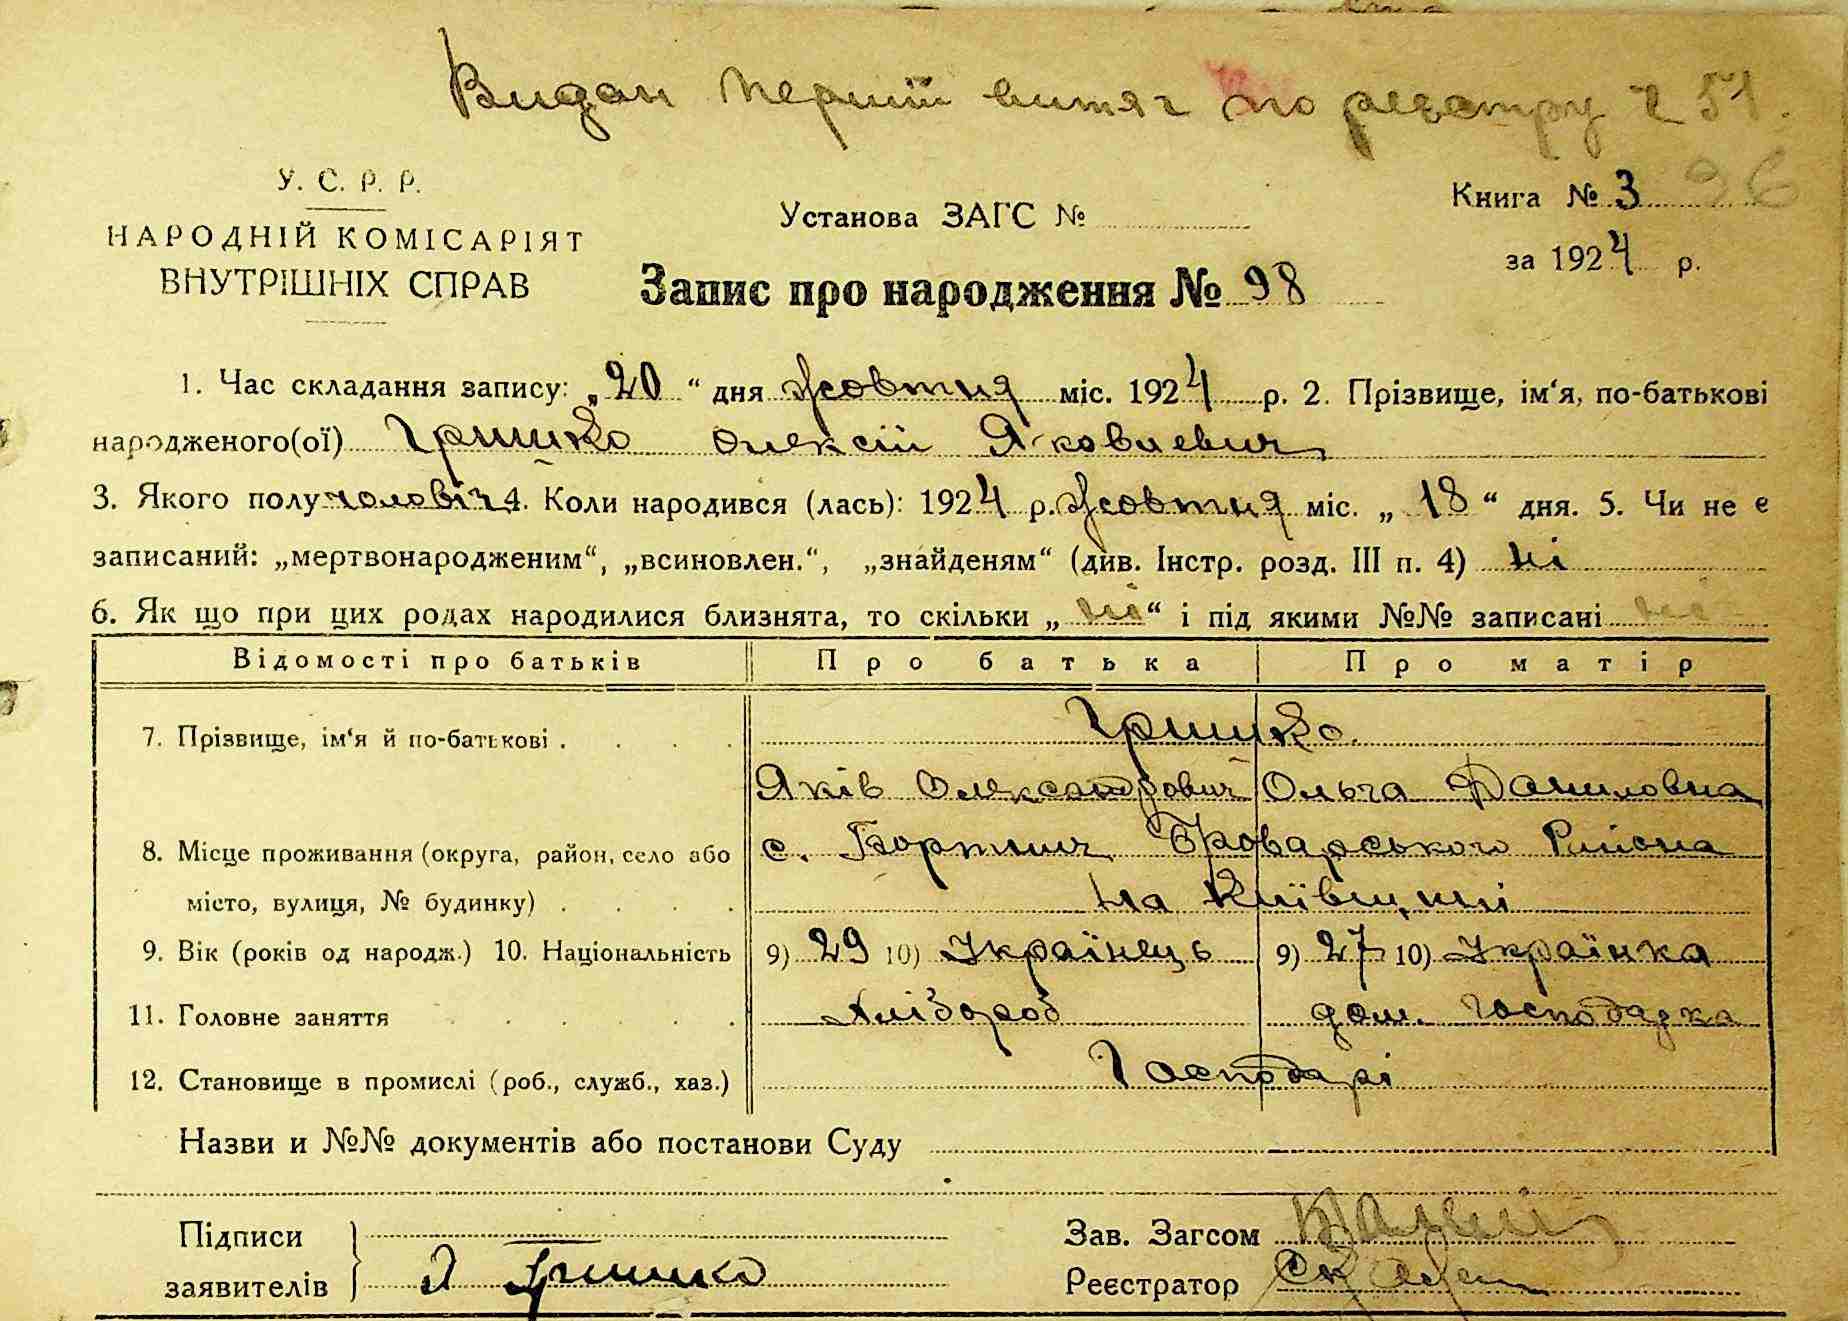 Видан перший витяг по реєстру № 51.
У. С. Р. Р.
НАРОДНІЙ КОМІСАРІЯТ
ВНУТРІШНІХ СПРАВ
Установа ЗАГС №
Книга № 3 96
за 1924 р.
Запис про народження № 98
1. Час складання запису: „20“ дня жовтня міс. 1924 р. 2. Прізвище, ім‘я, по-батькові
народженого(ої) Гришко Олексій Яковлевич
3. Якого полу чоловіч 4. Коли народився (лась): 1924 р. жовтня міс. „18“ дня. 5. Чи не є
записаний: „мертвонародженим“, „всиновлен.“, „знайденям“ (див. Інстр. розд. III п. 4) ні
6. Як що при цих родах народилися близнята, то скільки „ні“ і під якими №№ записані ні
Відомості про батьків Про батька Про матір
7. Прізвище, ім‘я й по-батькові . . . . Гришко.
Яків Олександрович Ольга Даниловна
8. Місце проживання (округа, район, село або с. Бортнич Броварського Району
місто, вулиця, № будинку) . . . . на Київщині
9. Вік (років од народж.) 10. Національність 9) 29 10) Українець 9) 27 10) Українка
11. Головне заняття . . . . . Хлібороб дом. господарка
12. Становище в промислі (роб., служб., хаз.) Господарі
Назви и №№ документів або постанови Суду
Підписи
заявителів Я Гришко
Зав. Загсом
Реєстратор